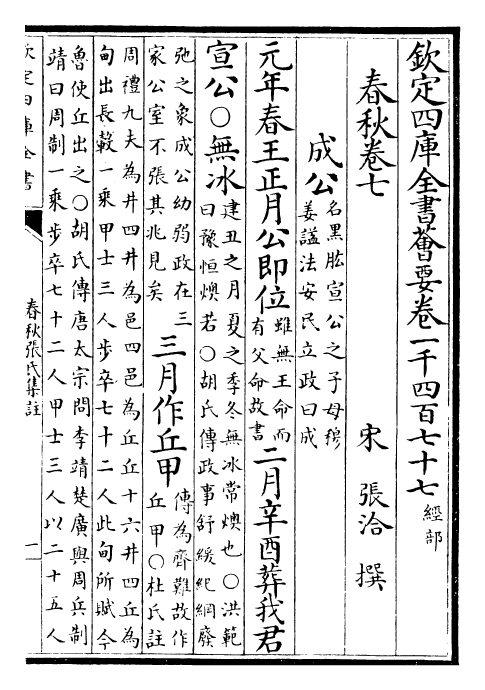 欽定四庫全書薈要卷一千四百七十七 經部
春秋卷七 宋 張洽 撰
成公 名黑肱宣公之子母穆
姜諡法安民立政曰成
元年春王正月公即位 雖無王命而
有父命故書 二月辛酉葬我君
宣公○無冰 建丑之月夏之季冬無冰常燠也○洪範
曰豫恒燠若○胡氏傳政事舒緩紀綱廢
弛之象成公幼弱政在三
家公室不張其兆見矣 三月作丘甲 傳為齊難故作
丘甲○杜氏註
周禮九夫為井四井為邑四邑為丘丘十六井四丘為
甸出長轂一乘甲士三人步卒七十二人此甸所賦今
魯使丘出之○胡氏傳唐太宗問李靖楚廣與周兵制
靖曰周制一乘步卒七十二人甲士三人以二十五人
欽定四庫全書
春秋張氏集註
一